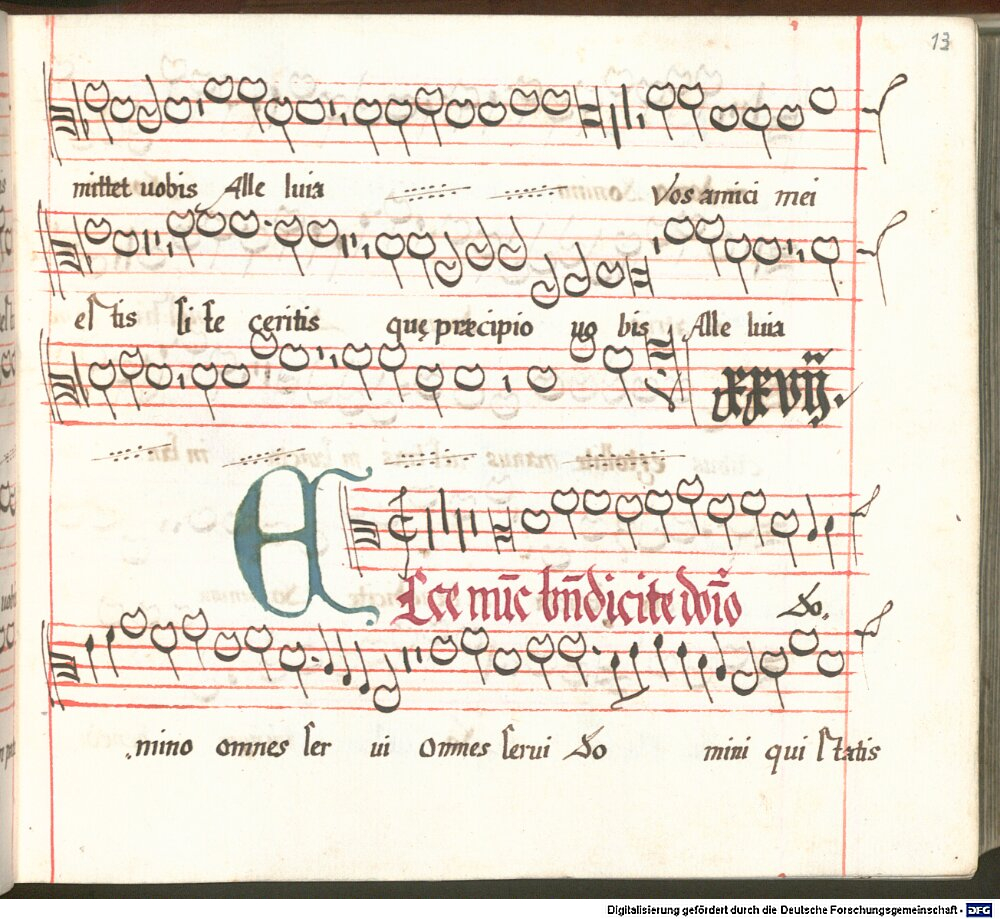 13
mittet uobis Alle luia Vos amici mei
estis si fe ceritis quę præcipio uo bis Alle luia
xxvij.
Ecce nūc bn̄dicite dn̄o Do.
mino omnes ser ui omnes serui Do mini qui statis
Digitalisierung gefördert durch die Deutsche Forschungsgemeinschaft - DFG